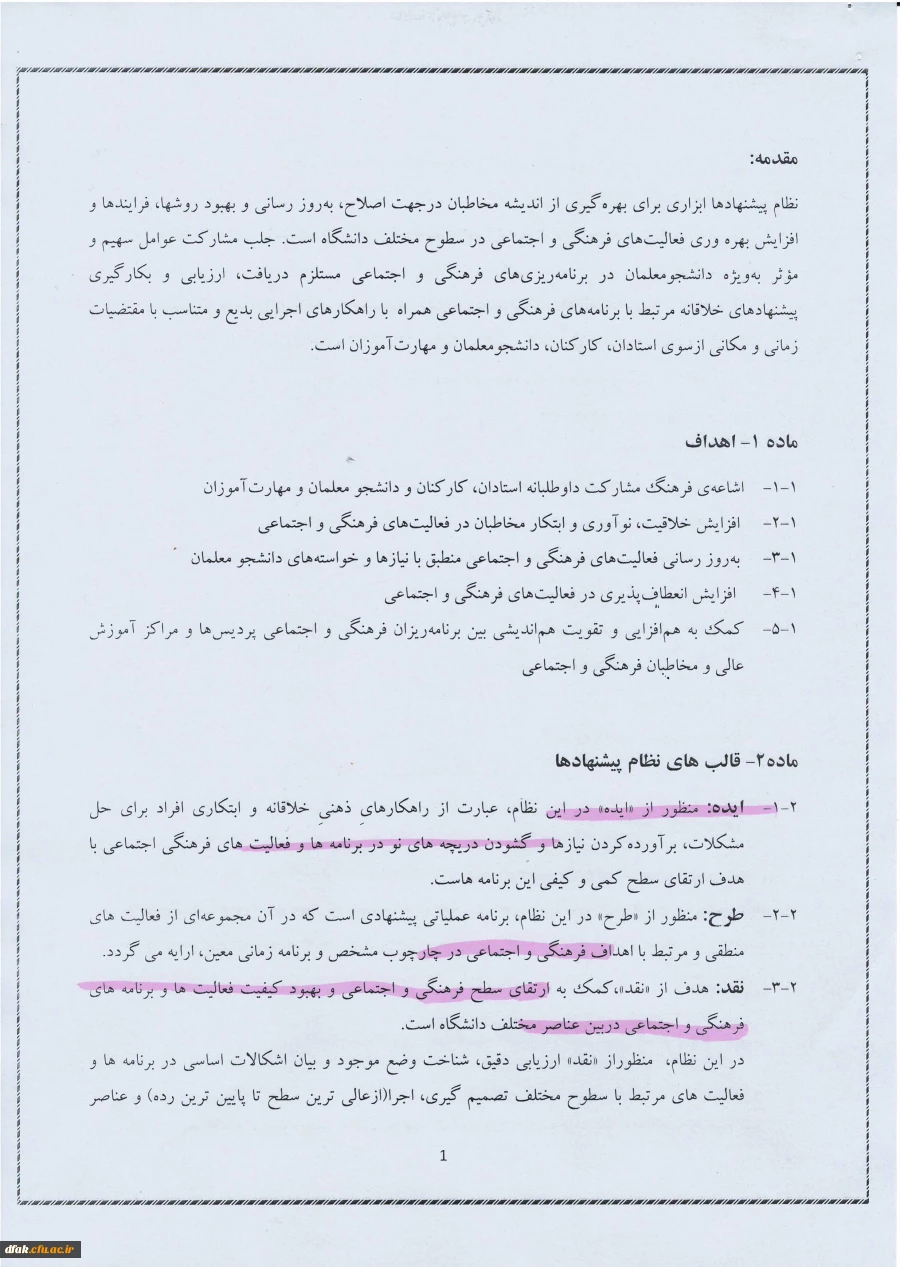 مقدمه:
نظام پیشنهادها ابزاری برای بهره‌گیری از اندیشه مخاطبان درجهت اصلاح، به‌روز رسانی و بهبود روشها، فرایندها و
افزایش بهره وری فعالیت‌های فرهنگی و اجتماعی در سطوح مختلف دانشگاه است. جلب مشارکت عوامل سهیم و
مؤثر به‌ویژه دانشجومعلمان در برنامه‌ریزی‌های فرهنگی و اجتماعی مستلزم دریافت، ارزیابی و بکارگیری
پیشنهادهای خلاقانه مرتبط با برنامه‌های فرهنگی و اجتماعی همراه با راهکارهای اجرایی بدیع و متناسب با مقتضیات
زمانی و مکانی ازسوی استادان، کارکنان، دانشجومعلمان و مهارت‌آموزان است.
ماده ۱- اهداف
۱-۱- اشاعه‌ی فرهنگ مشارکت داوطلبانه استادان، کارکنان و دانشجو معلمان و مهارت‌آموزان
۱-۲- افزایش خلاقیت، نوآوری و ابتکار مخاطبان در فعالیت‌های فرهنگی و اجتماعی
۱-۳- به‌روز رسانی فعالیت‌های فرهنگی و اجتماعی منطبق با نیازها و خواسته‌های دانشجو معلمان
۱-۴- افزایش انعطاف‌پذیری در فعالیت‌های فرهنگی و اجتماعی
۱-۵- کمک به هم‌افزایی و تقویت هم‌اندیشی بین برنامه‌ریزان فرهنگی و اجتماعی پردیس‌ها و مراکز آموزش
عالی و مخاطبان فرهنگی و اجتماعی
ماده۲- قالب های نظام پیشنهادها
۲-۱- ایده: منظور از «ایده» در این نظام، عبارت از راهکارهایِ ذهنیِ خلاقانه و ابتکاری افراد برای حل
مشکلات، برآورده‌کردن نیازها و گشودن دریچه های نو در برنامه ها و فعالیت های فرهنگی اجتماعی با
هدف ارتقای سطح کمی و کیفی این برنامه هاست.
۲-۲- طرح: منظور از «طرح» در این نظام، برنامه عملیاتی پیشنهادی است که در آن مجموعه‌ای از فعالیت های
منطقی و مرتبط با اهداف فرهنگی و اجتماعی در چارچوب مشخص و برنامه زمانی معین، ارایه می گردد.
۲-۳- نقد: هدف از «نقد»،کمک به ارتقای سطح فرهنگی و اجتماعی و بهبود کیفیت فعالیت ها و برنامه های
فرهنگی و اجتماعی دربین عناصر مختلف دانشگاه است.
در این نظام، منظوراز «نقد» ارزیابی دقیق، شناخت وضع موجود و بیان اشکالات اساسی در برنامه ها و
فعالیت های مرتبط با سطوح مختلف تصمیم گیری، اجرا(ازعالی ترین سطح تا پایین ترین رده) و عناصر
1
dfak.cfu.ac.ir